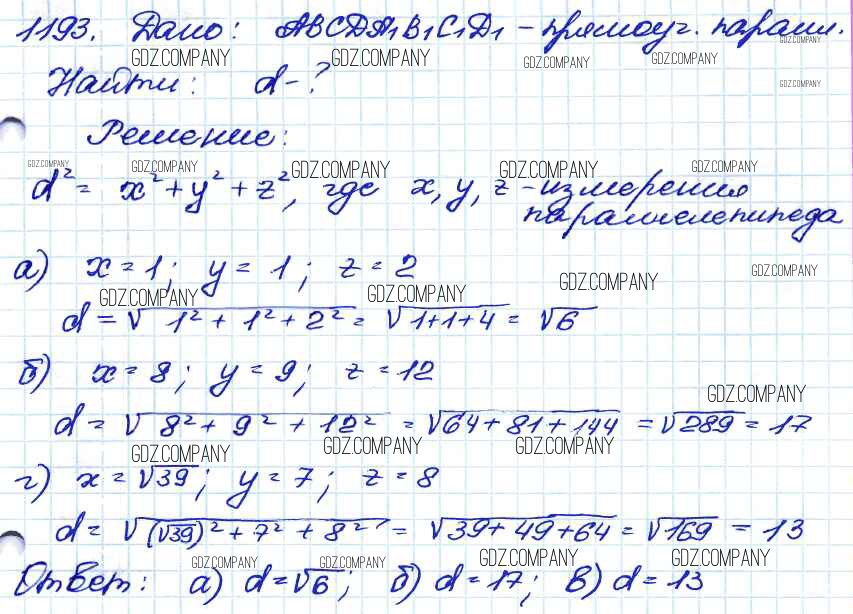 1193. Дано: ABCDA₁B₁C₁D₁ - прямоуг. паралл.
GDZ.COMPANY GDZ.COMPANY GDZ.COMPANY GDZ.COMPANY GDZ.COMPANY
Найти: d - ?
GDZ.COMPANY
Решение:
GDZ.COMPANY GDZ.COMPANY GDZ.COMPANY GDZ.COMPANY GDZ.COMPANY
d² = x² + y² + z², где x, y, z - измерения
параллелепипеда
а) x = 1; y = 1; z = 2
GDZ.COMPANY GDZ.COMPANY GDZ.COMPANY GDZ.COMPANY
d = √1² + 1² + 2² = √1+1+4 = √6
б) x = 8; y = 9; z = 12
GDZ.COMPANY
d = √8² + 9² + 12² = √64 + 81 + 144 = √289 = 17
GDZ.COMPANY GDZ.COMPANY GDZ.COMPANY
г) x = √39; y = 7; z = 8
d = √(√39)² + 7² + 8² = √39 + 49 + 64 = √169 = 13
GDZ.COMPANY GDZ.COMPANY GDZ.COMPANY GDZ.COMPANY
Ответ: а) d = √6; б) d = 17; в) d = 13